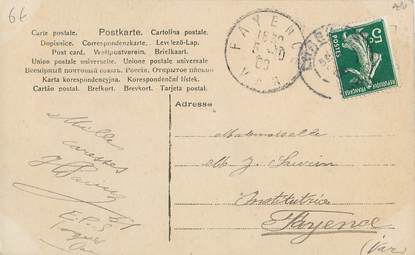 6€
Carte postale. Postkarte. Cartolina postale.
Dopisnice. Correspondenzkarte. Levelező-Lap.
Post card. Weltpostverein. Briefkaart.
Union postale universelle. Unione postale universale
Всемірный почтовый союзъ. Россія. Открытое письмо
Karta korespondencyjna. Korespondenční lístek.
Cartão postal. Brefkort. Brevkort. Tarjeta postal.
FAYENCE
VAR
5
POSTES
REPUBLIQUE FRANÇAISE
Adresse
Mademoiselle
M. J. Saurin
Institutrice
Fayence
(Var)
Mille
caresses
E.P.S